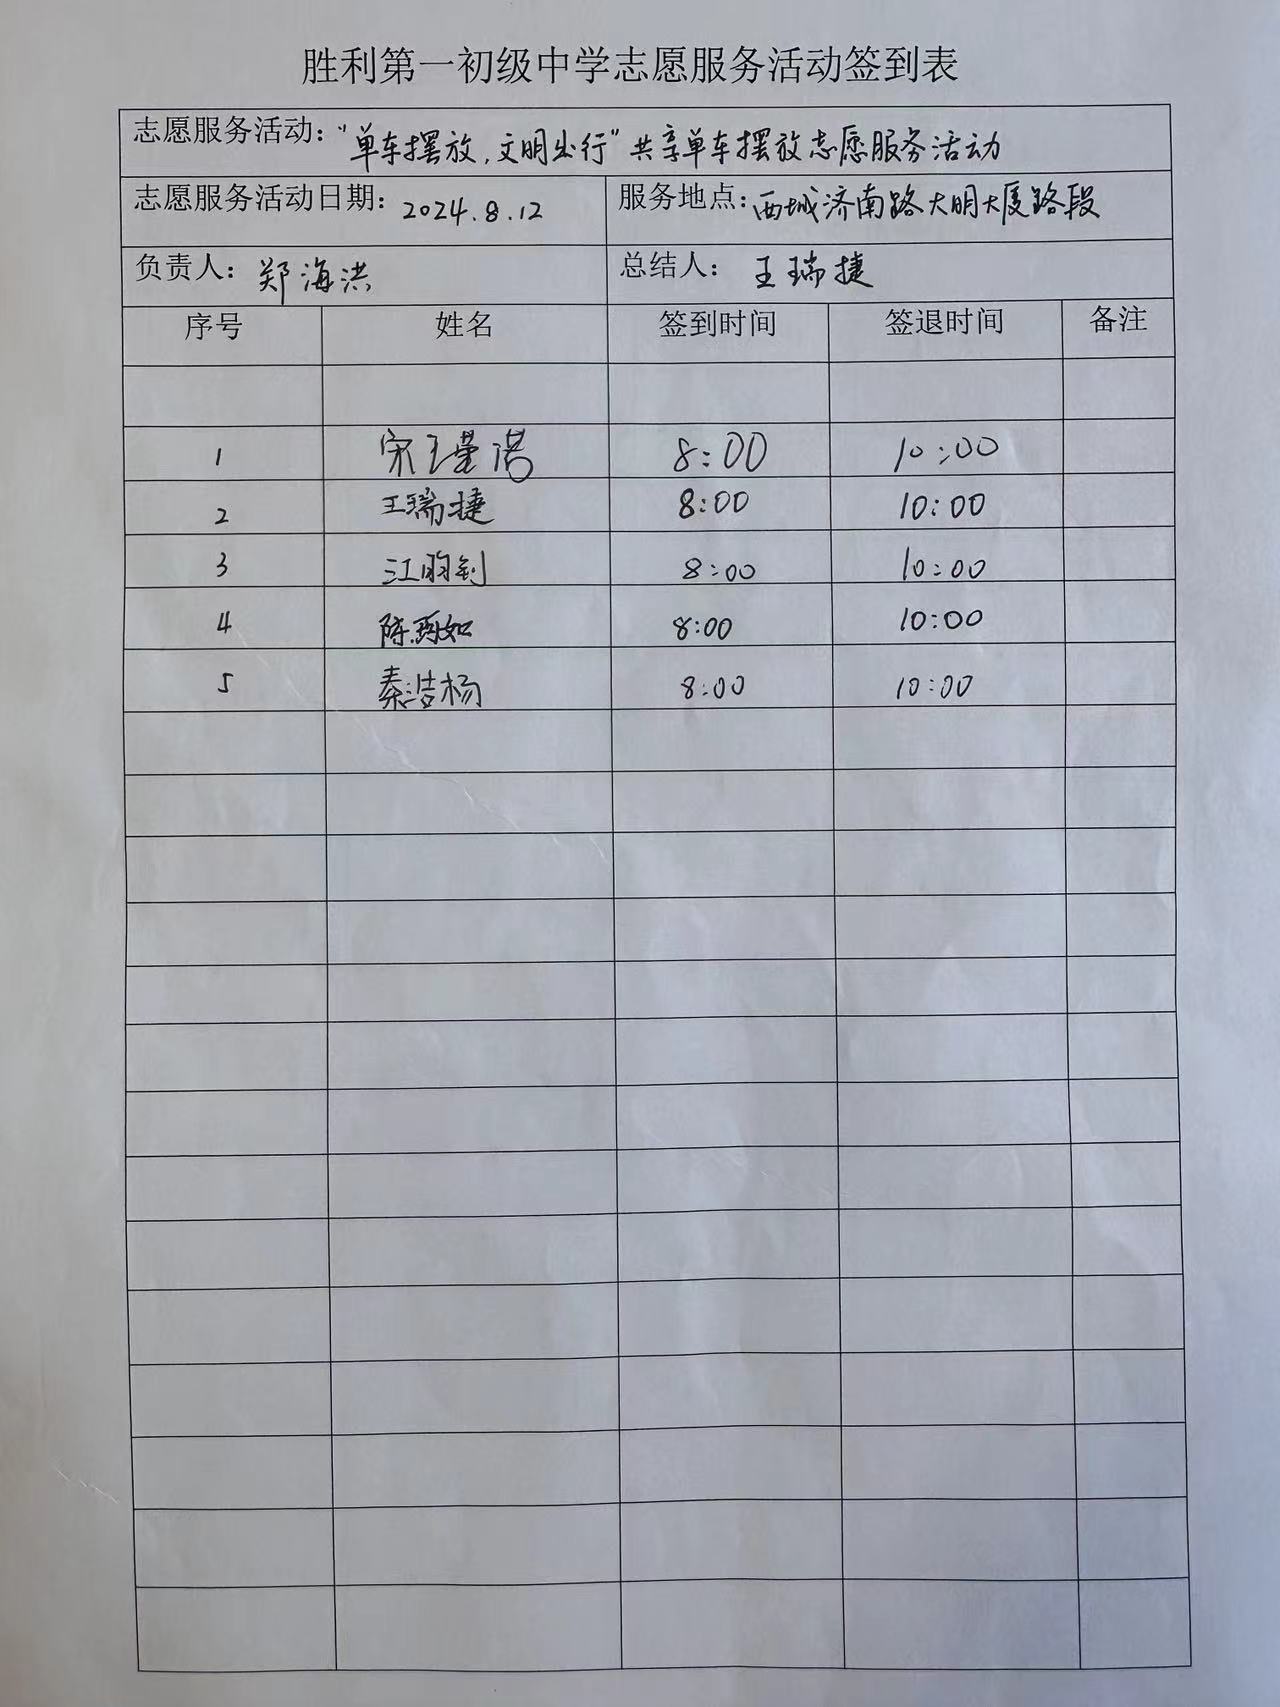 胜利第一初级中学志愿服务活动签到表
志愿服务活动：“单车摆放，文明出行”共享单车摆放志愿服务活动
志愿服务活动日期：2024.8.12 服务地点：西城济南路大明大厦路段
负责人：郑海洪 总结人：王瑞捷
序号 姓名 签到时间 签退时间 备注
1 宋 8:00 10:00
2 王瑞捷 8:00 10:00
3 江昀钊 8:00 10:00
4 陈 如 8:00 10:00
5 秦浩杨 8:00 10:00